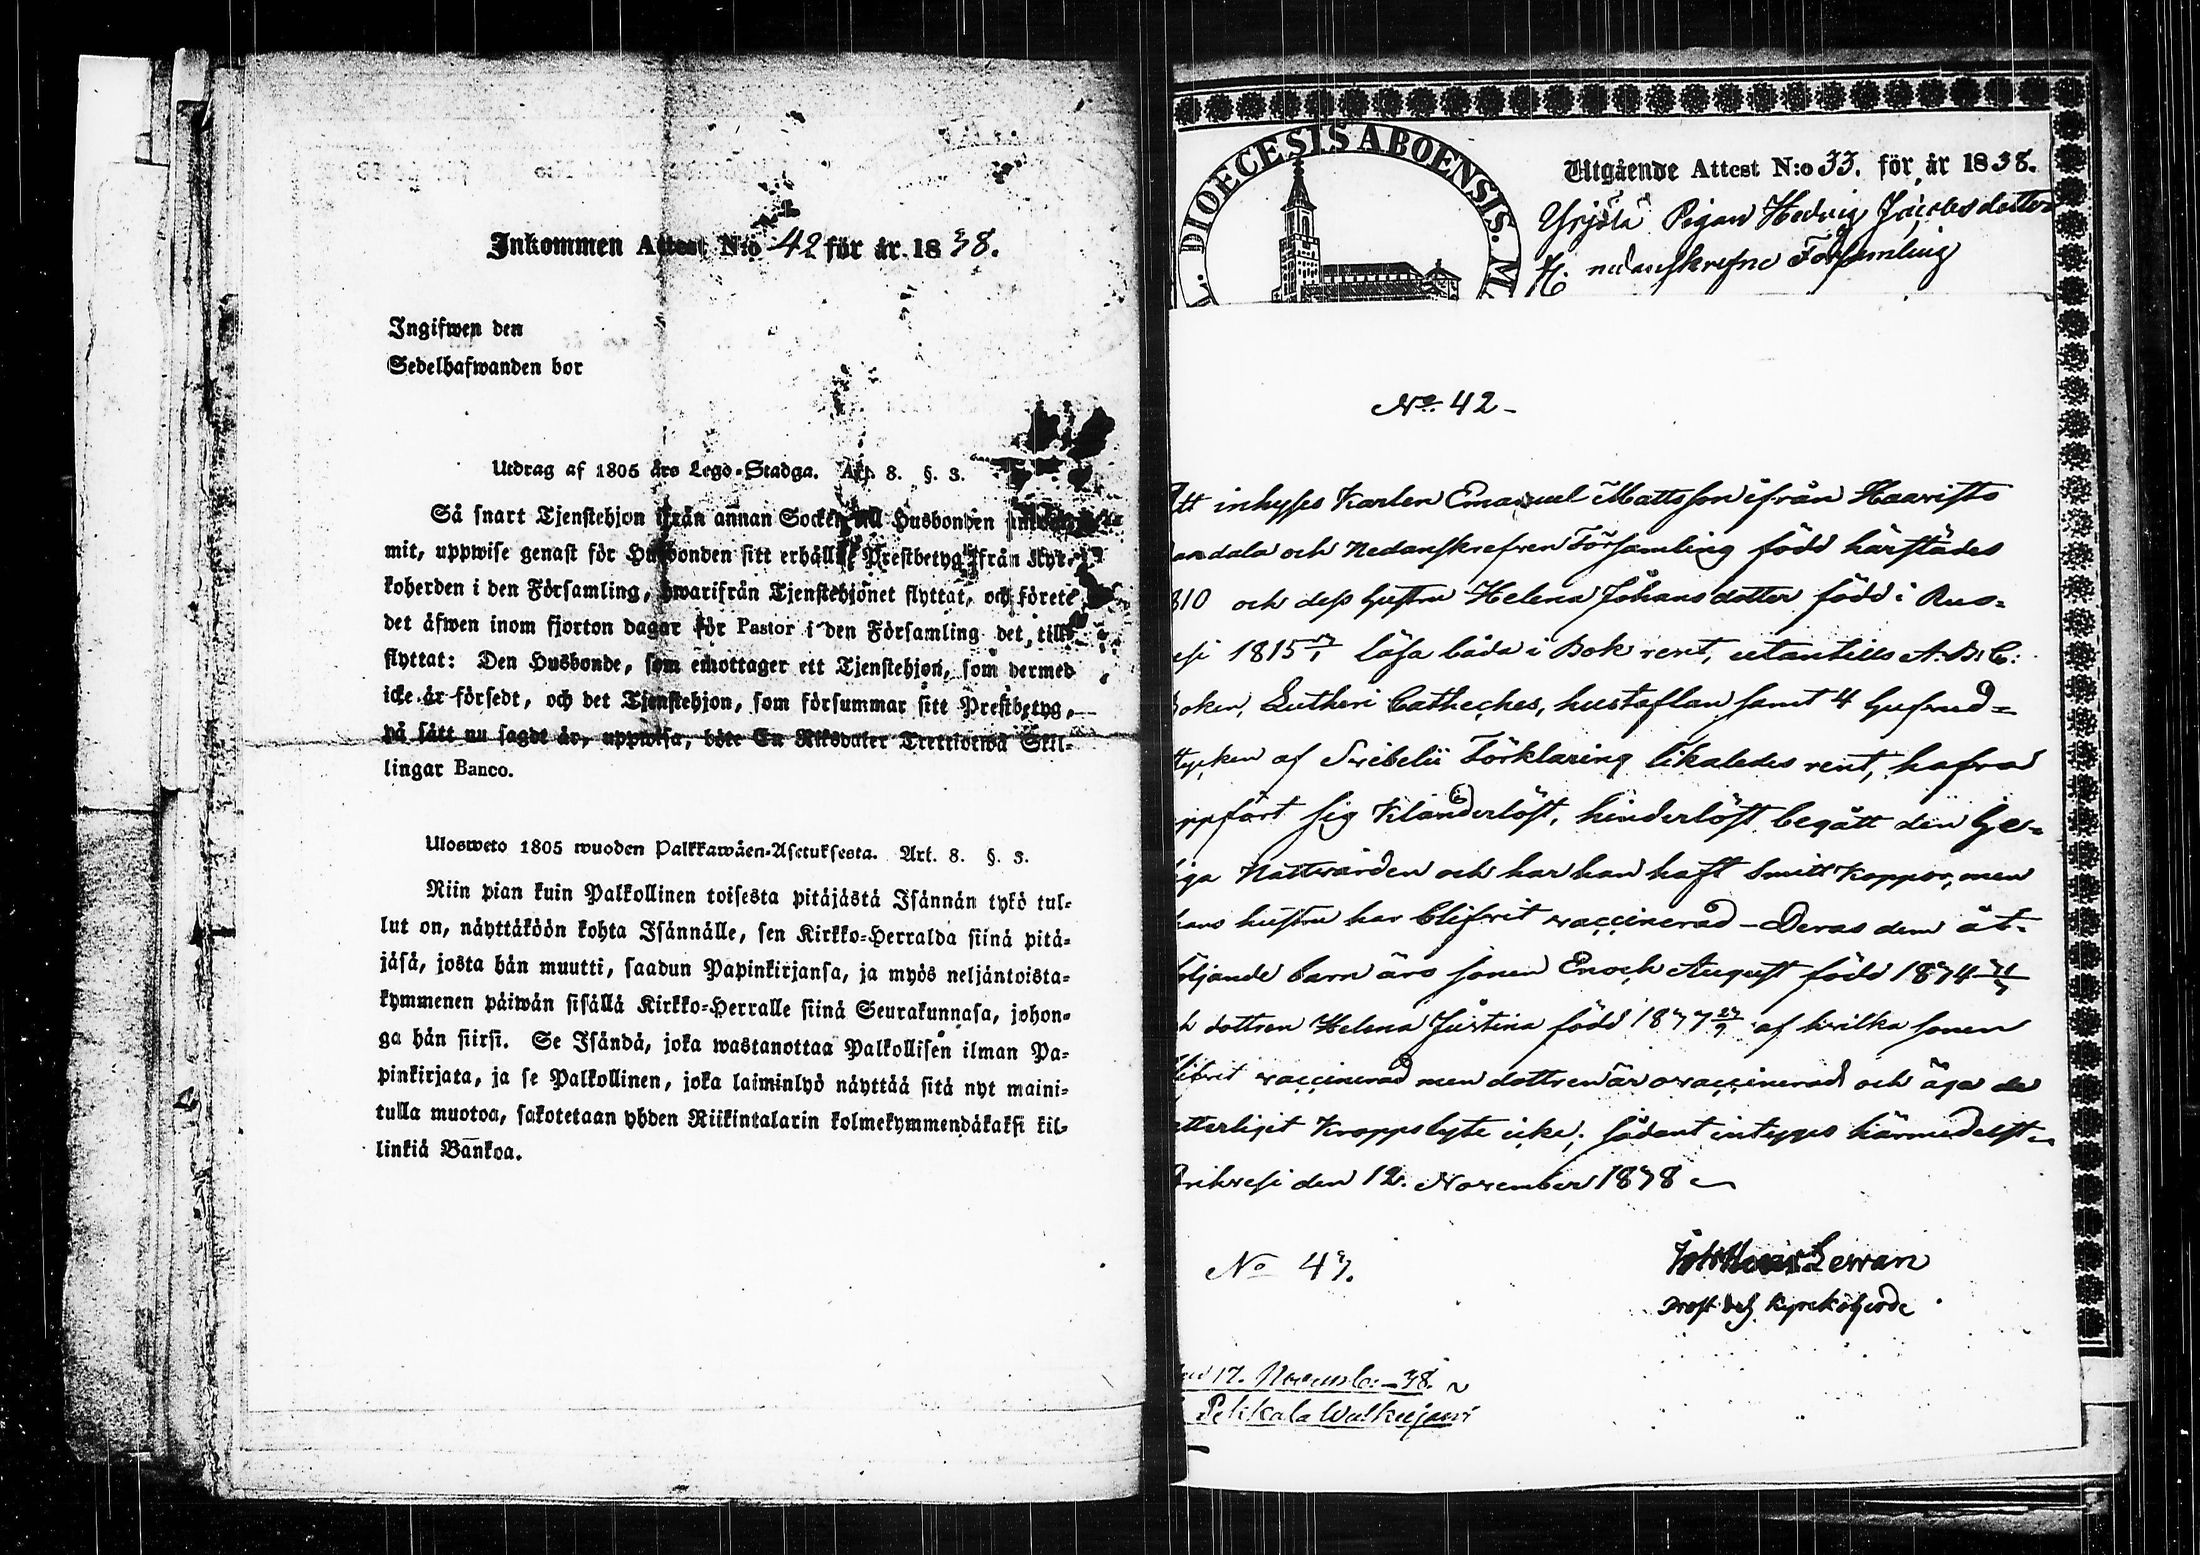 Inkommen Attest N:o 42 för år 1838.
Ingifwen den
Sedelhafwanden bor
Utdrag af 1805 års Lego-Stadga. Art. 8. §. 3.
Så snart Tjenstehjon ifrån annan Socken till Husbonden
mit, uppwise genast för Husbonden sitt erhållne Prestbetyg ifrån Kyr-
koherden i den Församling, hwarifrån Tjenstehjonet flyttat, och förete
det äfwen inom fjorton dagar för Pastor i den Församling det, till
flyttat: Den Husbonde, som emottager ett Tjenstehjon, som dermed
icke är försedt, och det Tjenstehjon, som försummar sitt Prestbetyg,
på sätt nu sagdt är, uppwisa, böte En Riksdaler Trettiotwå Skil-
lingar Banco.
Ulosweto 1805 wuoden Palkkawäen-Asetuksesta. Art. 8. §. 3.
Niin pian kuin Palkollinen toisesta pitäjästä Isännän tykö tul-
lut on, näyttäköön kohta Isännälle, sen Kirkko-Herralda siinä pitä-
jäsä, josta hän muutti, saadun Papinkirjansa, ja myös neljäntoista-
kymmenen päiwän sisällä Kirkko-Herralle siinä Seurakunnasa, johon-
ga hän siirsi. Se Isändä, joka wastanottaa Palkollisen ilman Pa-
pinkirjata, ja se Palkollinen, joka laiminlyö näyttää sitä nyt maini-
tulla muotoa, sakotetaan yhden Riikintalarin kolmekymmendäkaksi kil-
linkiä Bankoa.
DIOECESIS ABOENSIS. M
Utgående Attest N:o 33. för år 1838.
Yrjölä Pigan Hedvig Jacobsdotter
nedanskrefne Församling
No. 42-
Att inhyses Karlen Emanuel Mattsson ifrån Haaristo
dala och Nedanskrefven Församling född härstädes
810 och dess hustru Helena Johansdotter född i Rus=
1815 läsa båda i Bok rent, utantills A.B.C:
boken, Lutheri Catheches, hustaflan samt 4 hufvud=
stycken af Svebelii Förklaring likaledes rent, hafva
uppfört sig Klanderlöst, hinderlöst begått den He=
liga Nattvarden och har han haft Smitt Koppor, men
hans hustru har blifvit vaccinerad - Deras dem åt=
följande barn äro sonen Enoch August född 1834
ch dottren Helena Justina född 1837 27/9 af hvilka sonen
blifvit vaccinerad men dottren är ovaccinerad och äga de
etterligit Kroppslyte icke; sådant intygges härmedelst
den 12. November 1838
No 43.
Prost och Kyrkoherde
den 17. Novemb: -38.
Pekkala Walkiejärvi